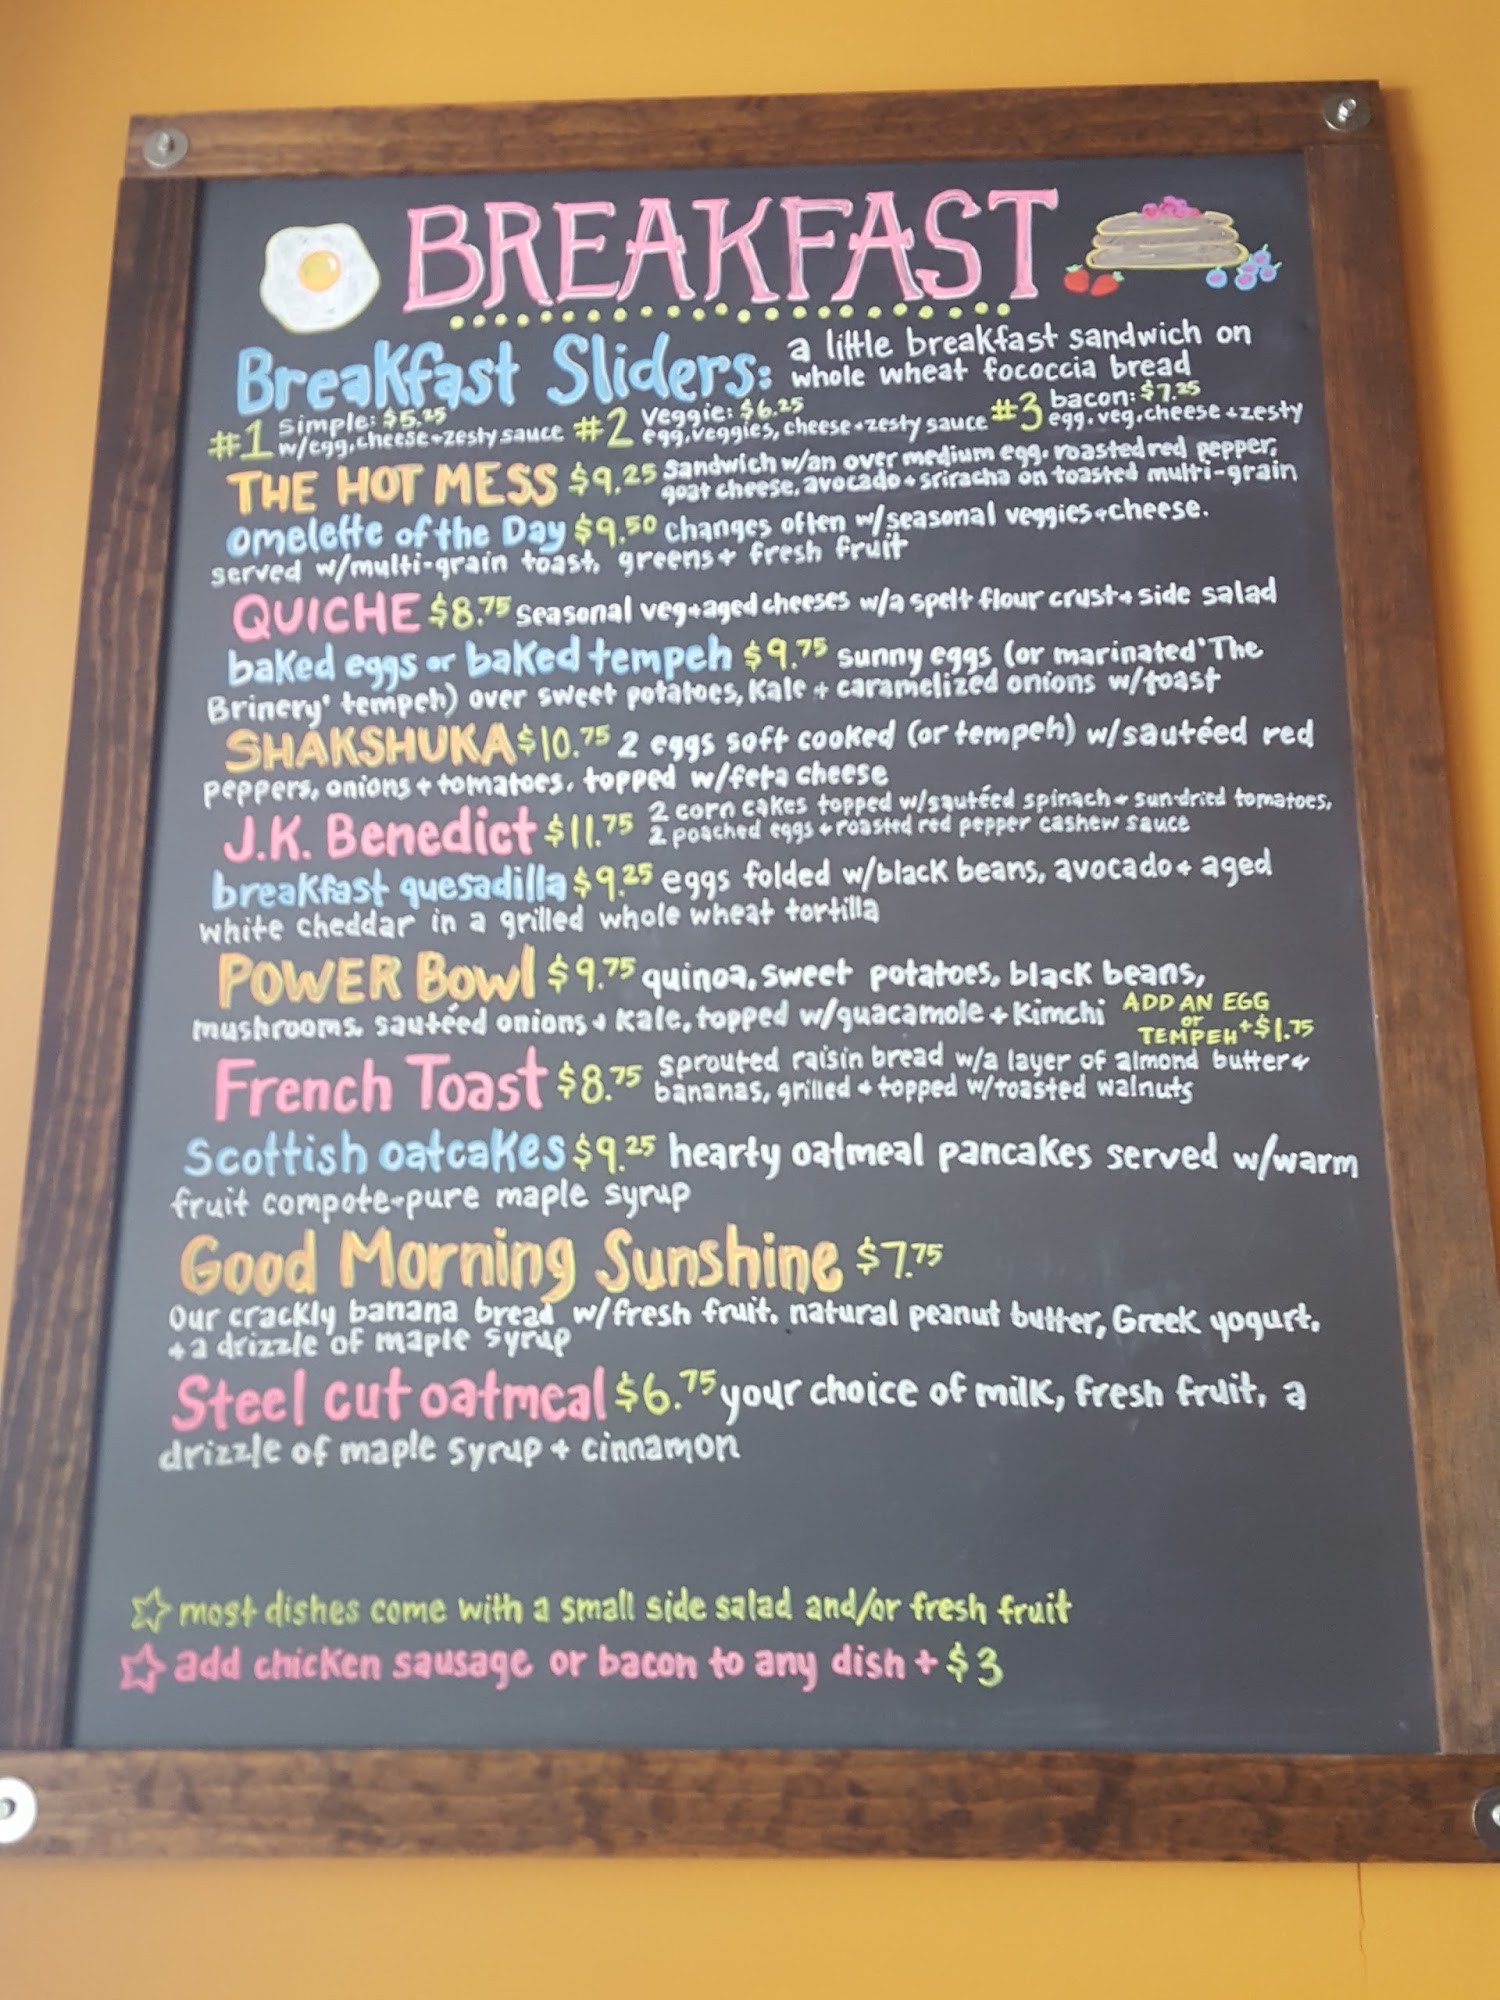 BREAKFAST
Breakfast Sliders: a little breakfast sandwich on
whole wheat fococcia bread
#1 Simple: $5.25
w/egg, cheese + zesty sauce
#2 Veggie: $6.25
egg, veggies, cheese + zesty sauce
#3 bacon: $7.25
egg, veg, cheese + zesty
THE HOT MESS $9.25 Sandwich w/an over medium egg, roasted red pepper,
goat cheese, avocado + sriracha on toasted multi-grain
omelette of the Day $9.50 changes often w/seasonal veggies + cheese.
served w/multi-grain toast, greens + fresh fruit
QUICHE $8.75 Seasonal veg + aged cheeses w/a spelt flour crust + side salad
baked eggs or baked tempeh $9.75 sunny eggs (or marinated 'The
Brinery' tempeh) over sweet potatoes, kale + caramelized onions w/toast
SHAKSHUKA $10.75 2 eggs soft cooked (or tempeh) w/sautéed red
peppers, onions + tomatoes, topped w/feta cheese
J.K. Benedict $11.75 2 corn cakes topped w/sautéed spinach + sun-dried tomatoes,
2 poached eggs + roasted red pepper cashew sauce
breakfast quesadilla $9.25 eggs folded w/black beans, avocado + aged
white cheddar in a grilled whole wheat tortilla
POWER Bowl $9.75 quinoa, sweet potatoes, black beans,
mushrooms, sautéed onions + kale, topped w/guacamole + Kimchi
ADD AN EGG
or
TEMPEH + $1.75
French Toast $8.75 sprouted raisin bread w/a layer of almond butter +
bananas, grilled + topped w/toasted walnuts
Scottish oatcakes $9.25 hearty oatmeal pancakes served w/warm
fruit compote + pure maple syrup
Good Morning Sunshine $7.75
Our crackly banana bread w/fresh fruit, natural peanut butter, Greek yogurt,
+ a drizzle of maple syrup
Steel cut oatmeal $6.75 your choice of milk, fresh fruit, a
drizzle of maple syrup + cinnamon
☆ most dishes come with a small side salad and/or fresh fruit
☆ add chicken sausage or bacon to any dish + $3